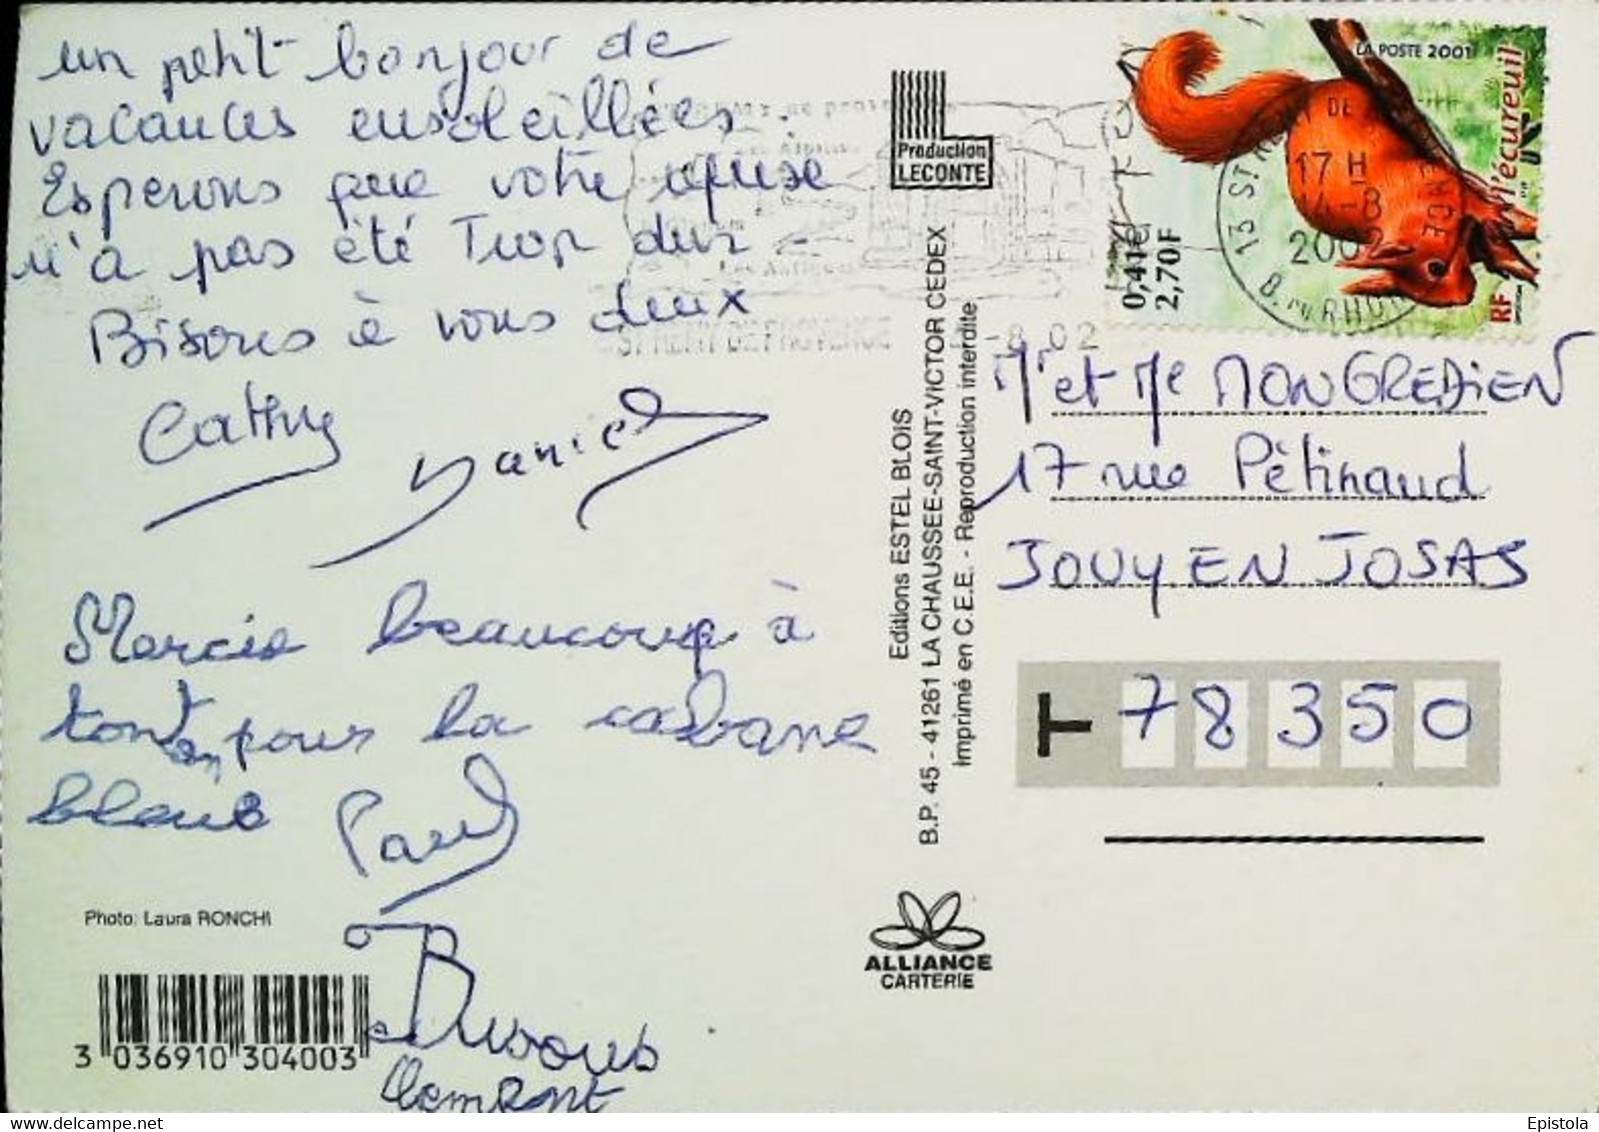 un petit bonjour de
vacances ensoleillées.
Esperons que votre
n'a pas été Trop dur
Bisous à vous deux
Cathy
Daniel
Mercie beaucoup à
tonton pour la cabane
bleue
Paul
Bisous
Clement
Photo: Laura RONCHI
3 036910 304003
Production
LECONTE
Editions ESTEL BLOIS
B.P. 45 - 41261 LA CHAUSSEE-SAINT-VICTOR CEDEX
Imprimé en C.E.E. - Reproduction interdite
ALLIANCE
CARTERIE
LA POSTE 2001
l'écureuil
RF
0,41€
2,70F
13 ST REMY DE
17 H
14-8
2002
B. DU RHONE
ST REMY DE PROVENCE
-8 02
Mr et Me MONGREDIEN
17 rue Pétinaud
JOUY EN JOSAS
T 78350
Epistola